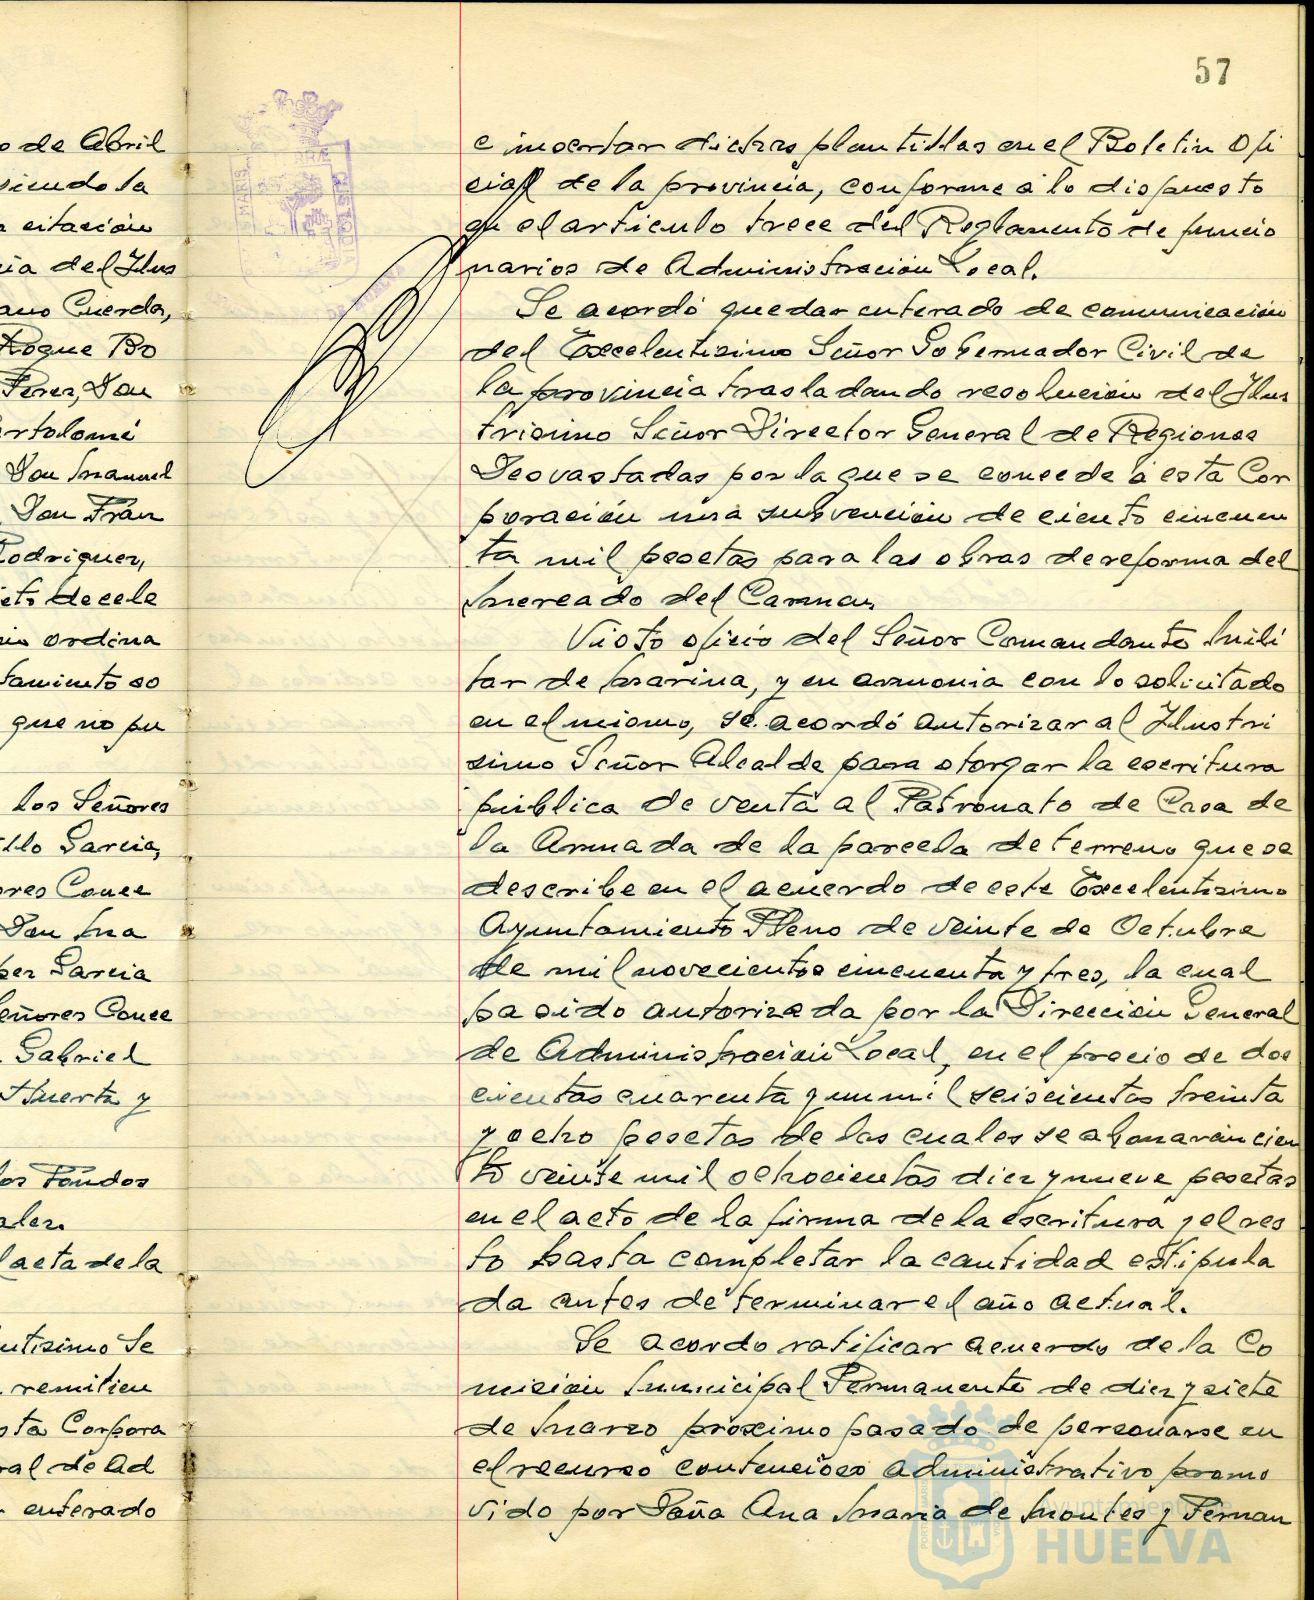 57
o de Abril
siendo la
citación
ia del Ilus
ano Cuerda,
Roque Bo
Perez, Don
rtolomé
Don Manuel
Don Fran
Rodriguez,
eto de cele
ordina
tamiento so
que no pu
los Señores
illo Garcia,
ores Conce
Don Ma
Garcia
eñores Conce
Gabriel
Huerta y
los Fondos
ales.
l acta de la
ntisimo Se
remitien
sta Corpora
ral de Ad
enterado
e insertar dichas plantillas en el Boletin Ofi
cial de la provincia, conforme a lo dispuesto
en el articulo trece del Reglamento de funcio
narios de Administración Local.
Se acordó quedar enterado de comunicación
del Excelentisimo Señor Gobernador Civil de
la provincia trasladando resolución del Ilus
trisimo Señor Director General de Regiones
Devastadas por la que se concede á esta Cor
poración una subvención de ciento cincuen
ta mil pesetas para las obras de reforma del
Mercado del Carmen.
Visto oficio del Señor Comandante Mili
tar de Marina, y en armonia con lo solicitado
en el mismo, se acordó autorizar al Ilustri
simo Señor Alcalde para otorgar la escritura
pública de venta al Patronato de Casa de
la Armada de la parcela de terreno que se
describe en el acuerdo de este Excelentisimo
Ayuntamiento Pleno de veinte de Octubre
de mil novecientos cincuenta y tres, la cual
ha sido autorizada por la Dirección General
de Administración Local, en el precio de dos
cientas cuarenta y un mil seiscientas treinta
y ocho pesetas de las cuales se abonarán cien
to veinte mil ochocientas diez y nueve pesetas
en el acto de la firma de la escritura y el res
to hasta completar la cantidad estipula
da antes de terminar el año actual.
Se acordo ratificar acuerdo de la Co
misión Municipal Permanente de diez y siete
de Marzo próximo pasado de personarse en
el recurso contencioso administrativo promo
vido por Doña Ana Maria de Montes y Fernan
Ayuntamiento de
HUELVA